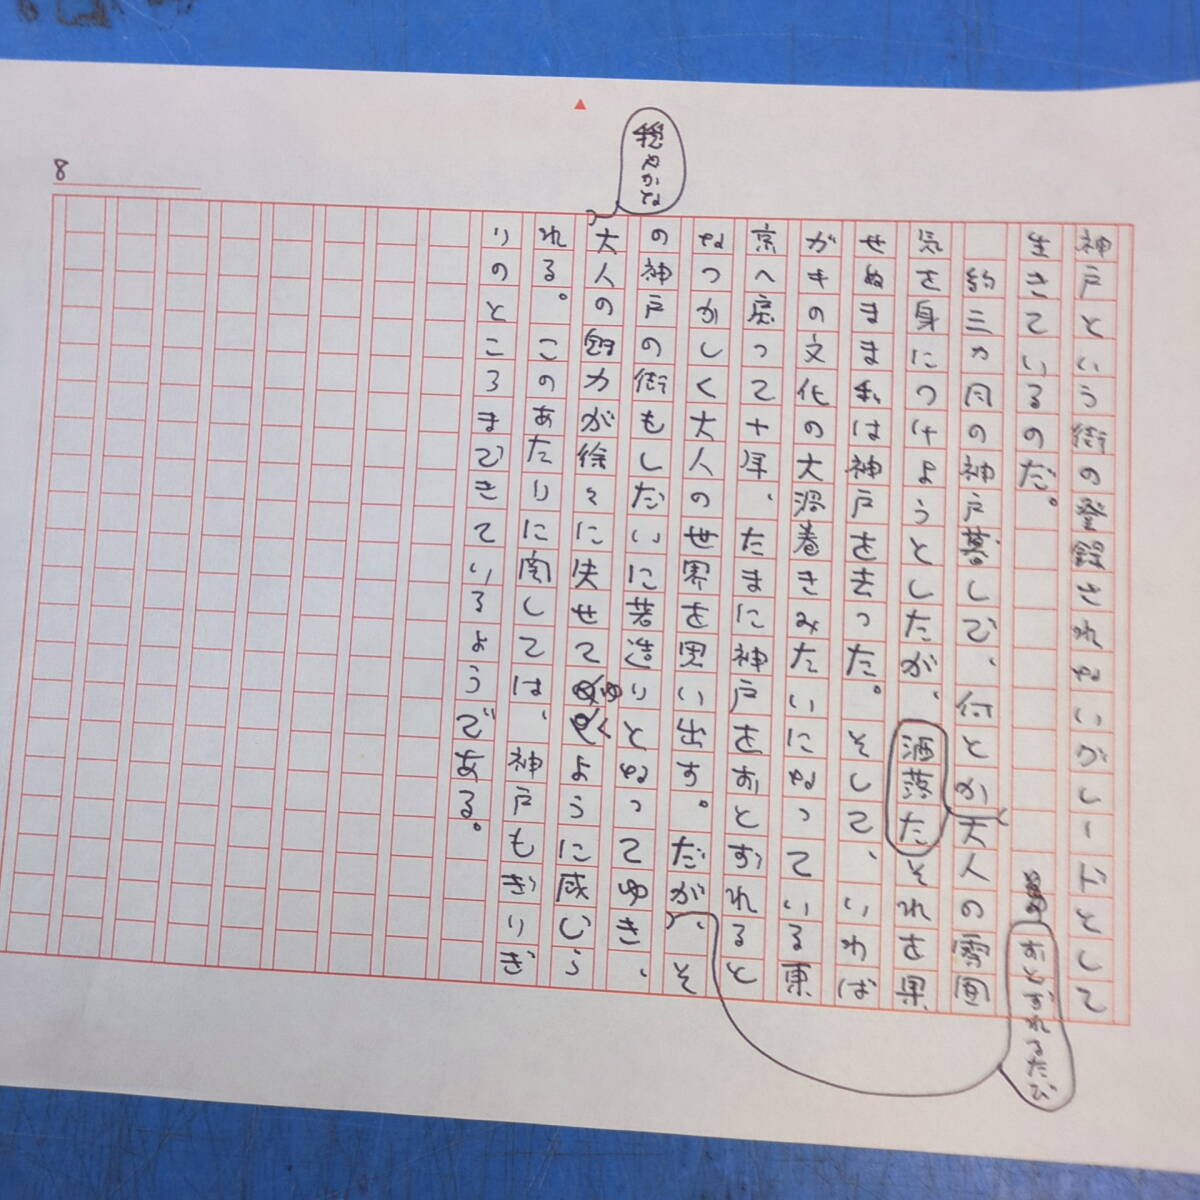 神戸という街の登録されないグレードとして
生きているのだ。
約三カ月の神戸暮しで、何とか大人の雰囲
気を身につけようとしたが、洒落たそれを果
せぬまま私は神戸を去った。そして、いわば
ガキの文化の大渦巻きみたいになっている東
京へ戻って十年、たまに神戸をおとずれると
なつかしく大人の世界を思い出す。だが、そ
おとずれるたび
の神戸の街もしだいに若造りとなってゆき、
穏やかな
大人の魅力が徐々に失せてゆくように感じら
れる。このあたりに関しては、神戸もぎりぎ
りのところまできているようである。
8